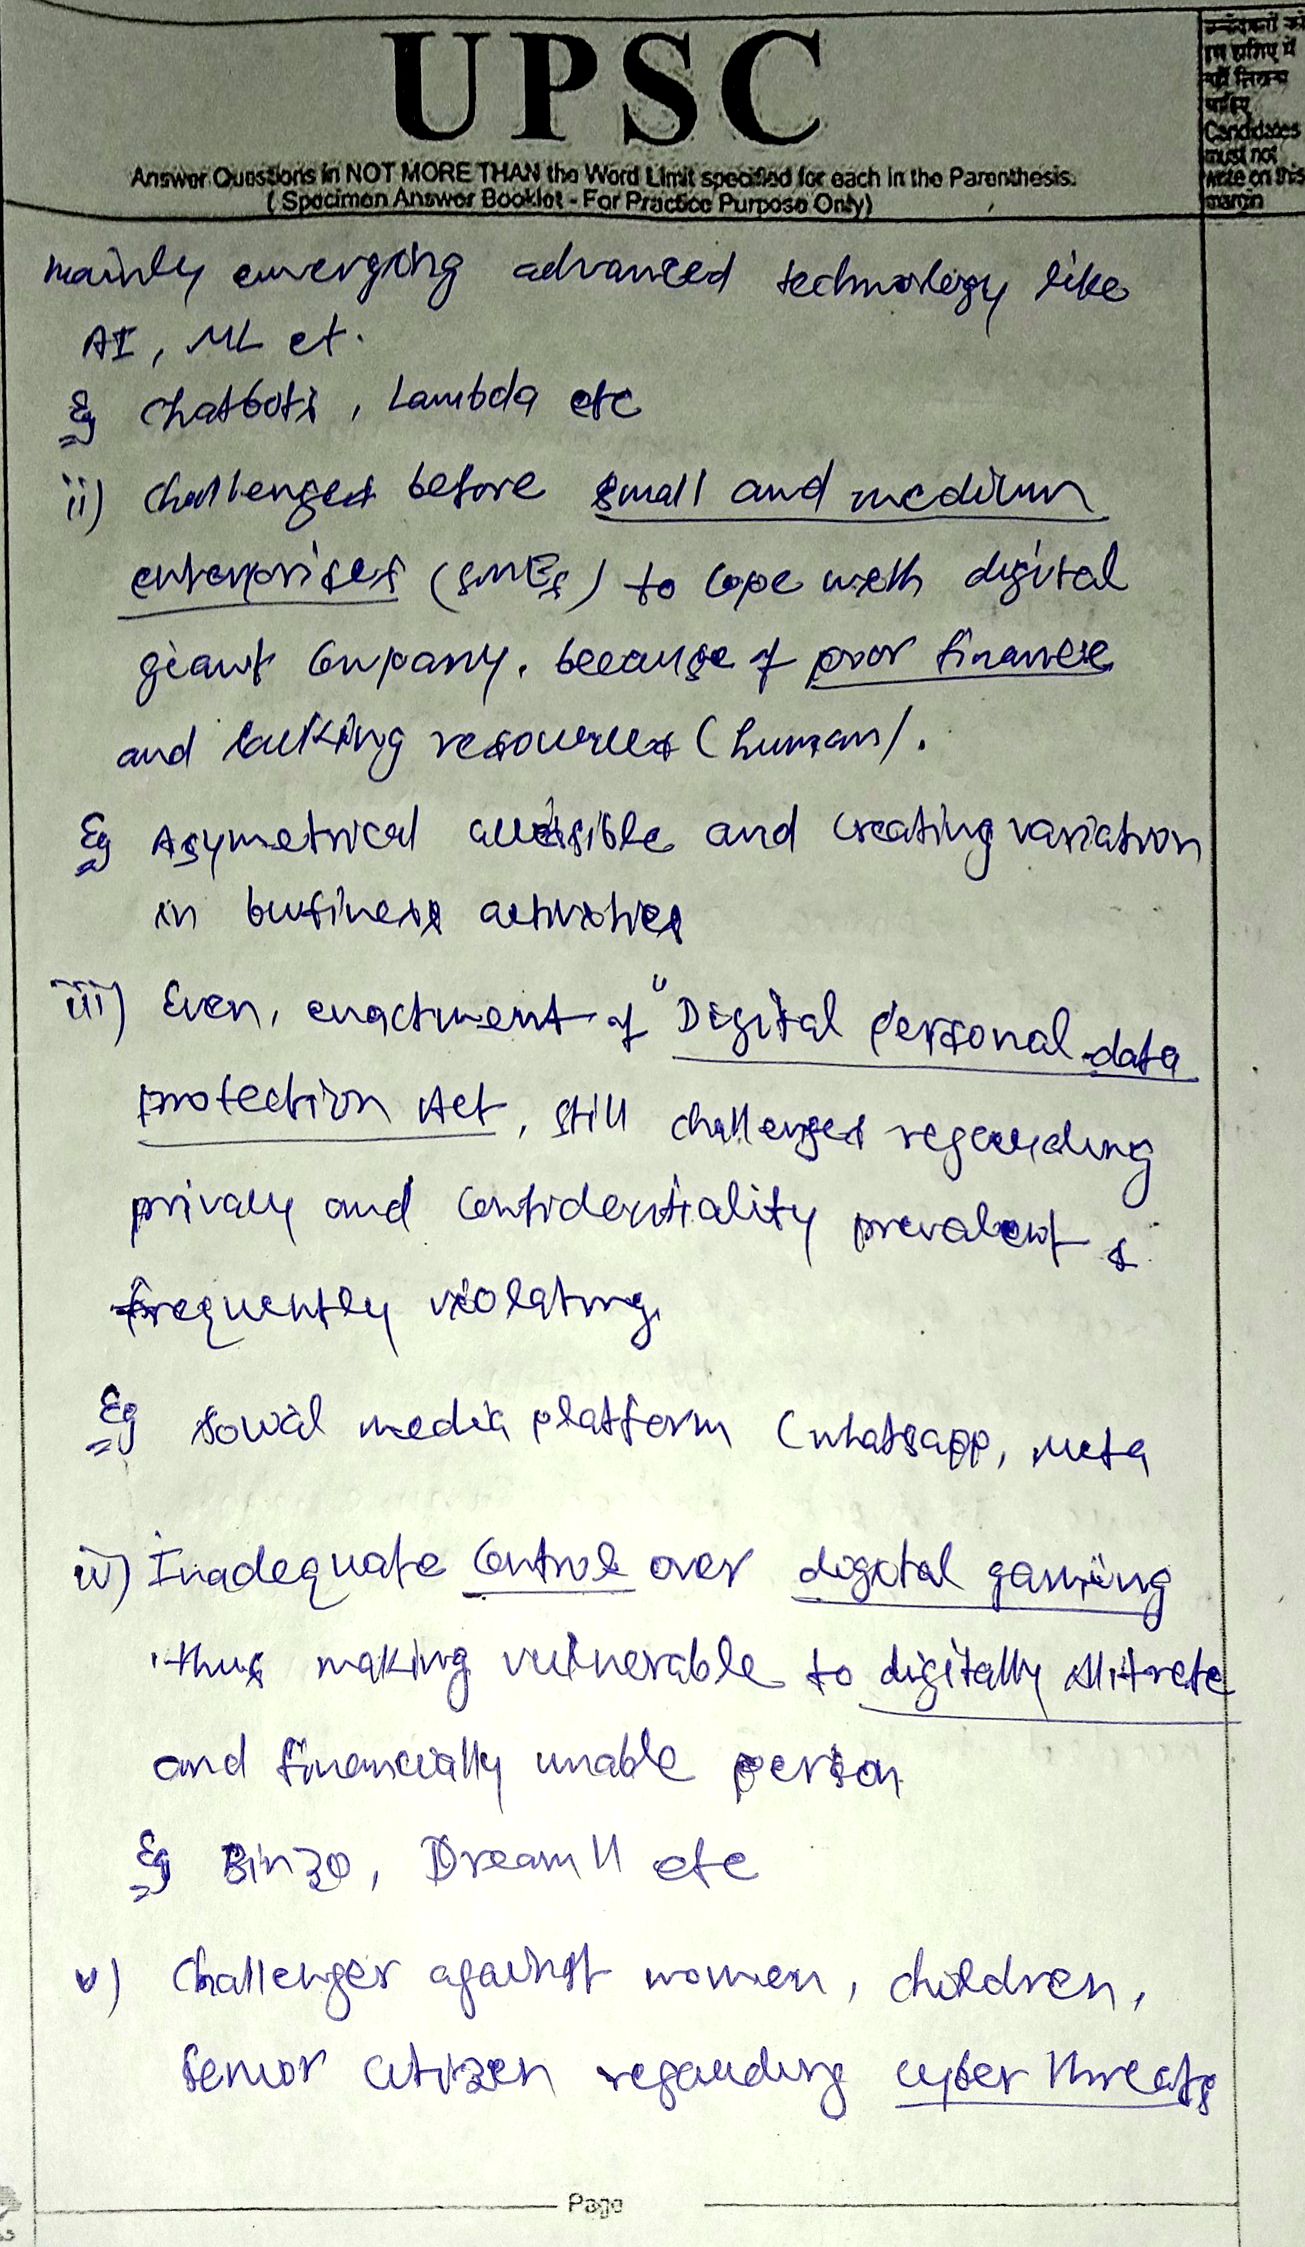 UPSC
Answer Questions in NOT MORE THAN the Word Limit specified for each in the Parenthesis.
( Specimen Answer Booklet - For Practice Purpose Only)
उम्मीदवारों को
इस हाशिए में
नहीं लिखना
चाहिए
Candidates
must not
write on this
margin
mainly emerging advanced technology like
AI, ML et.
Eg chatbots, Lambda etc
ii) challenges before small and medium
enterprises (SMEs) to cope with digital
giant company. because of poor finance
and lacking resources (human).
Eg Asymetrical accessible and creating variation
in business activities
iii) Even, enactment of "Digital personal data
protection Act, still challenges regarding
privacy and confidentiality prevalent &
frequently violating.
Eg social media platform (whatsapp, meta
iv) Inadequate control over digital gaming
thus making vulnerable to digitally illitrete
and financially unable person
Eg Binzo, Dream 11 etc
v) Challenges against women, children,
senior citizen regarding cyber threats
Page